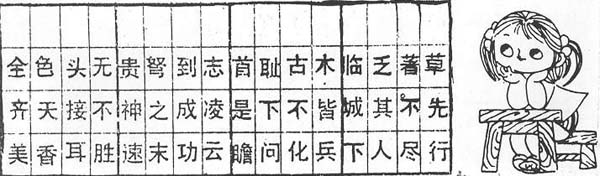 全齐美
色天香
头接耳
无不胜
贵神速
弩之末
到成功
志凌云
首是瞻
耻下问
古不化
木皆兵
临城下
乏其人
著不尽
草先行